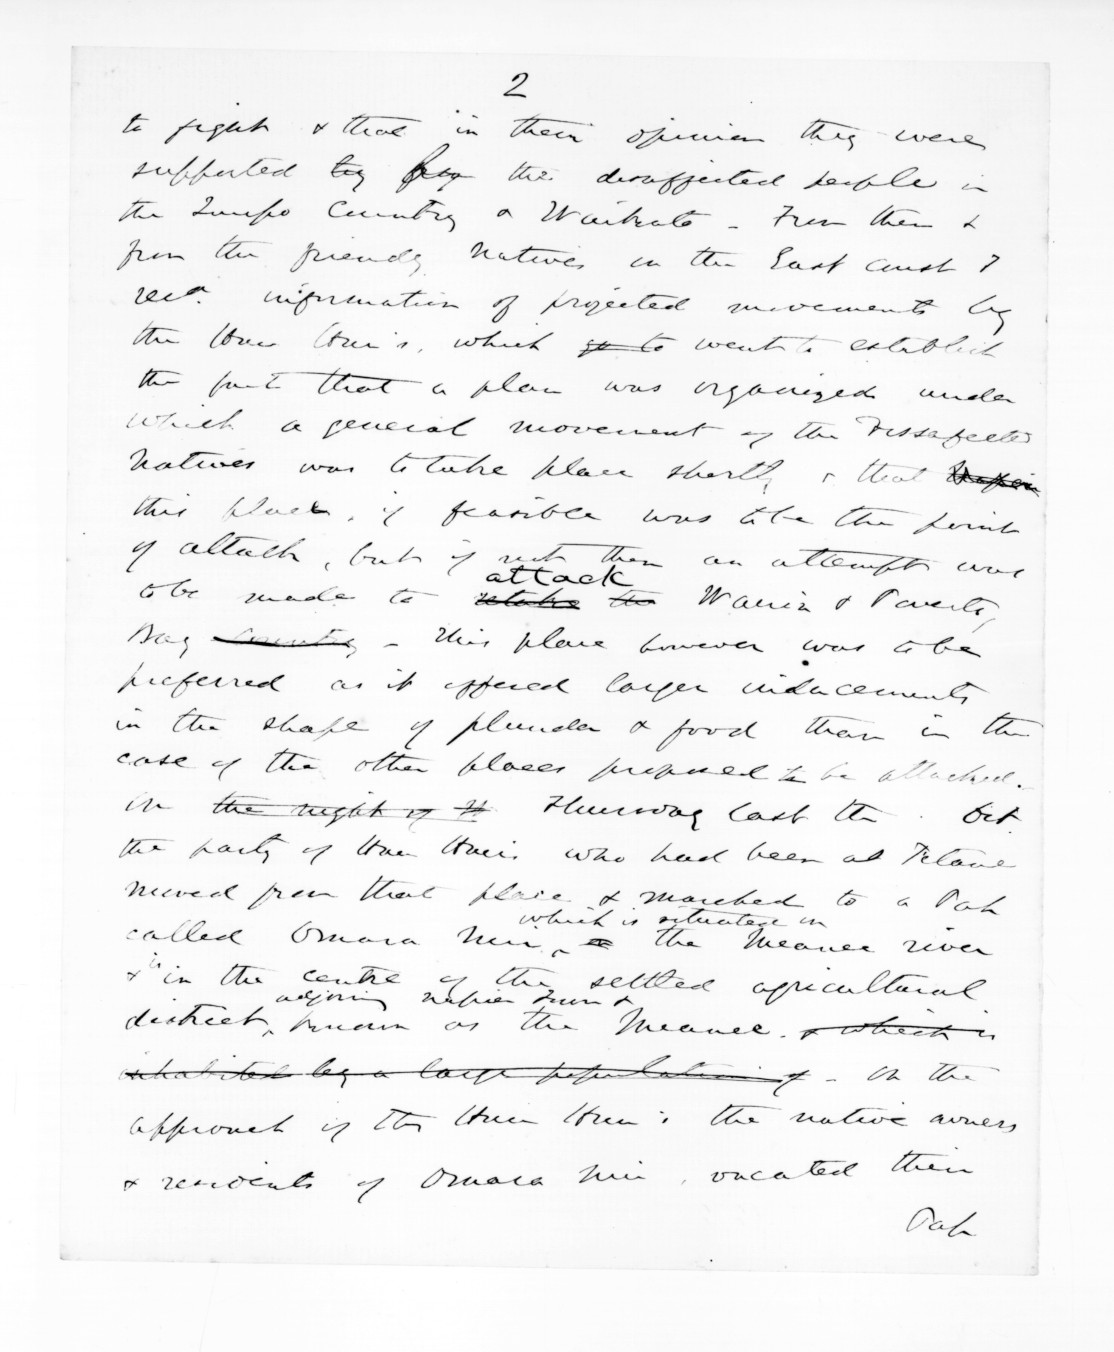 2
to fight & that in their opinion they were
supported by the disaffected people in
the Taupo Country & Waikato - From them &
from the friendly Natives on the East Coast I
recd. information of projected movements by
the Hau Hau's, which go to went to establish
the fact that a plan was organized under
which a general movement of the Disaffected
Natives was to take place shortly, & that Napier
this place, if feasible was to be the point
of attack, but if not then an attempt was
attack
to be made to retake the Wairoa & Poverty
Bay Country - This place however was to be
preferred as it offered larger inducements
in the shape of plunder & food than in the
case of the other places proposed to be attacked.
On the night of Thursday last the . Oct.
the party of Hau Haus who had been at Petane
moved from that place & marched to a Pah
which is situated on
called Omara nui, the Meanee river
& is in the centre of the settled agricultural
adjoining Napier Town &
district, known as the Meanee. & which is
inhabited by a large population of - On the
approach of the Hau Hau's the native owners
& residents of Omara nui, vacated their
Pah